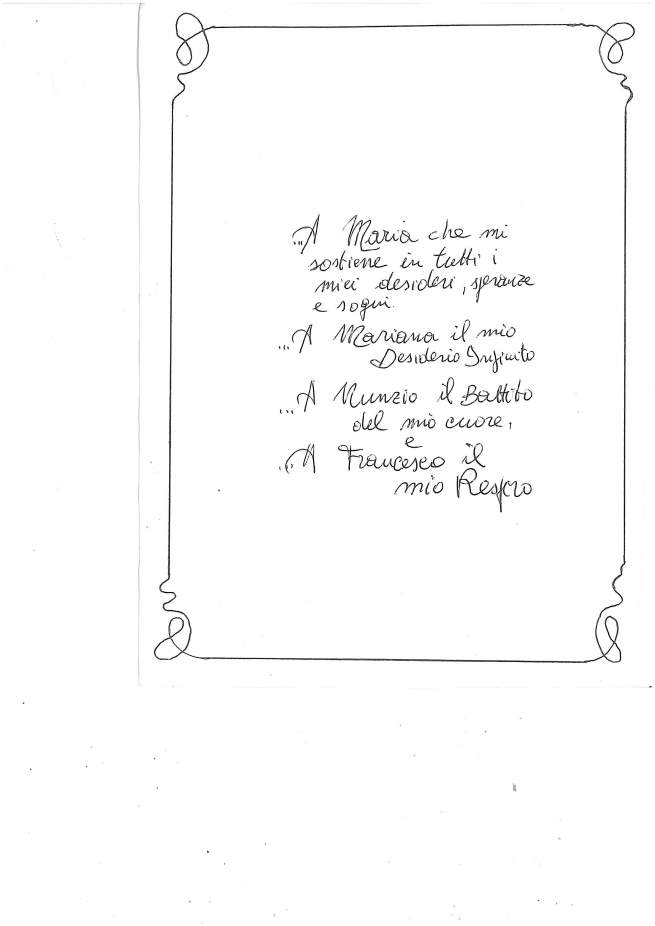 ...A Maria che mi
sostiene in tutti i
miei desideri, speranze
e sogni.
...A Mariana il mio
Desiderio Infinito
...A Nunzio il Battito
del mio cuore,
e
...A Francesco il
mio Respiro